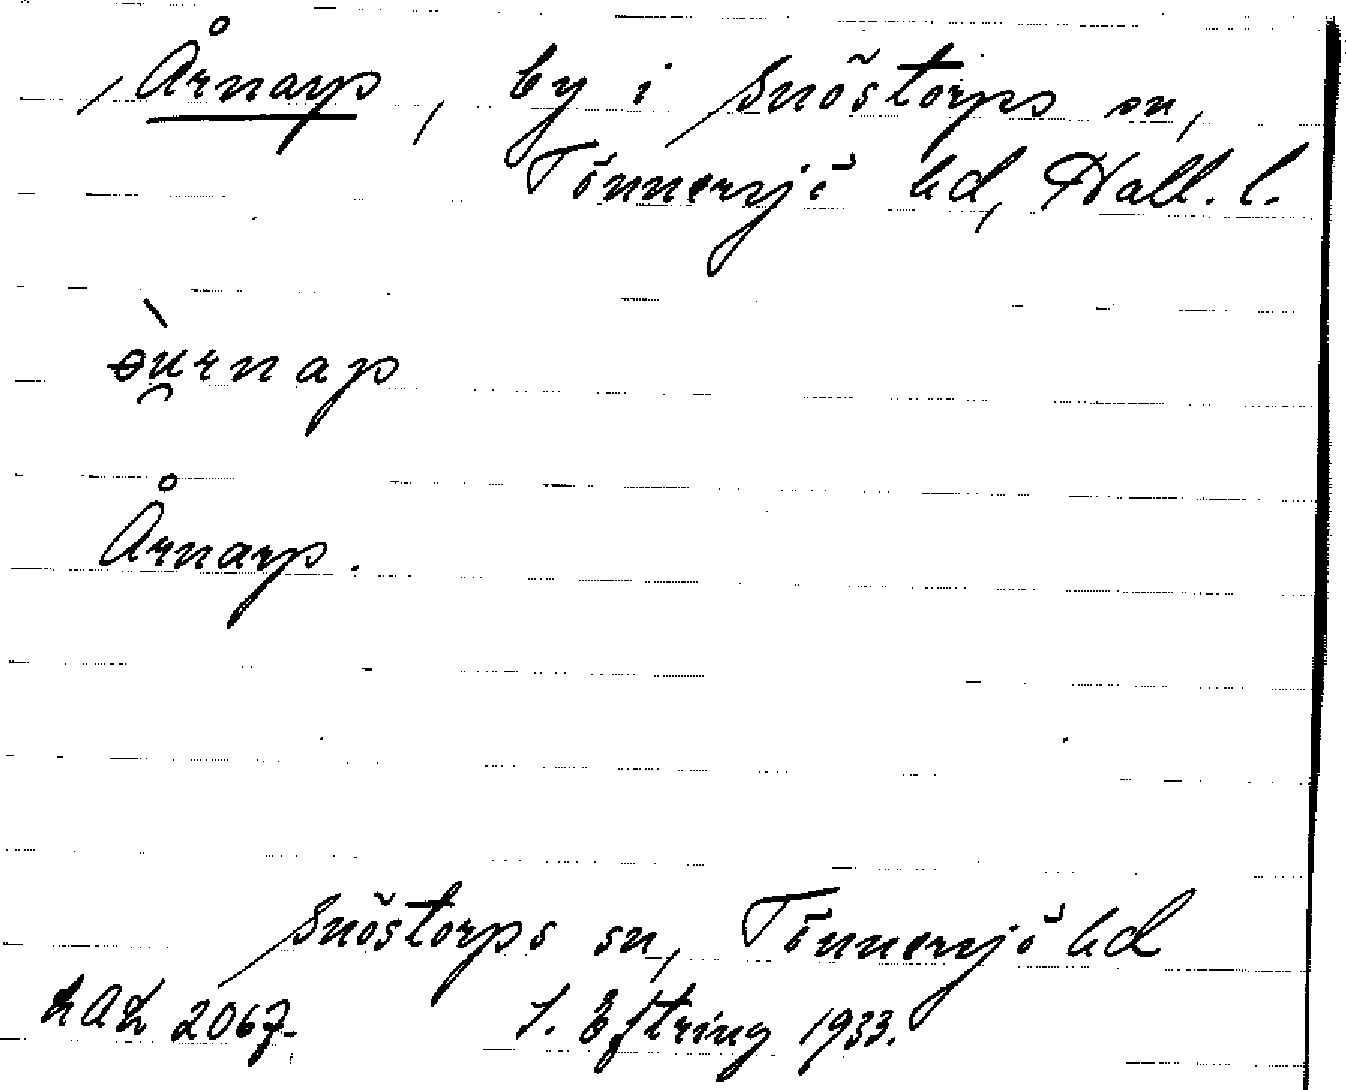 Årnarp, by i Snöstorps sn,
Tönnersjö hd, Hall. l.
Årnarp.
Snöstorps sn, Tönnersjö hd
LAL 2067. S. Eftring 1933.